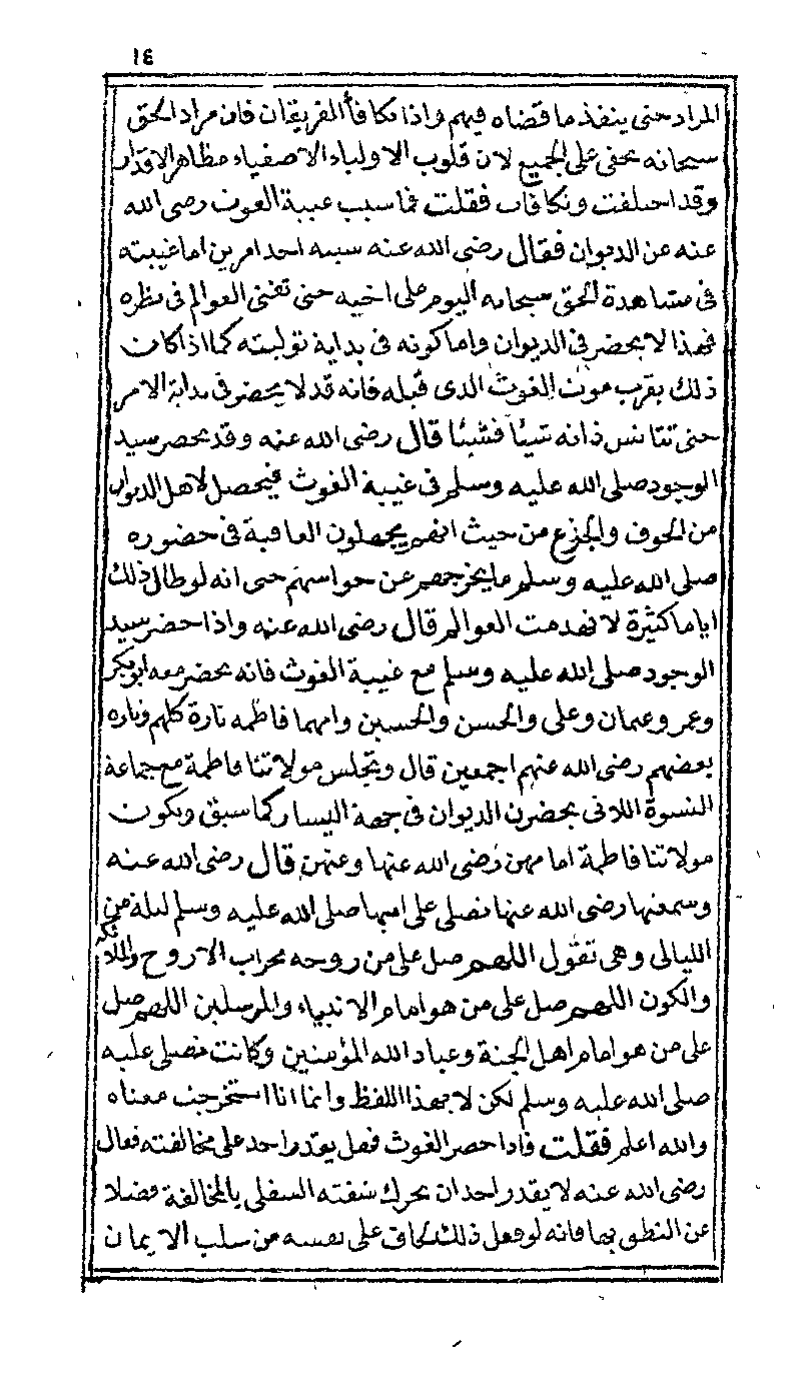 ١٤
المراد حتى ينفذ ما قضاه فيهم واذا تكافأ الفريقان فان مراد الحق
سبحانه يخفى على الجميع لان قلوب الاولياء الاصفياء مظاهر الاقدار
وقد اختلفت وتكافات فقلت فما سبب غيبة الغوث رضى الله
عنه عن الديوان فقال رضى الله عنه سببه احد امرين اما غيبته
فى مشاهدة الحق سبحانه حتى تفنى العوالم فى نظره
فهذا لا يحضر فى الديوان واما كونه فى بداية توليته كما اذا كان
ذلك بقرب موت الغوث الذى قبله فانه قد لا يحضر فى بداية الامر
حتى تتانس ذاته شيئا فشيئا قال رضى الله عنه وقد يحضر سيد
الوجود صلى الله عليه وسلم فى غيبة الغوث فيحصل لاهل الديوان
من الخوف والجزع من حيث انهم يجهلون العاقبة فى حضوره
صلى الله عليه وسلم ما يخرجهم عن حواسهم حتى انه لو طال ذلك
اياما كثيرة لانهدمت العوالم قال رضى الله عنه واذا حضر سيد
الوجود صلى الله عليه وسلم مع غيبة الغوث فانه يحضر معه ابو بكر
وعمر وعثمان وعلى والحسن والحسين وامهما فاطمه تارة كلهم وتاره
بعضهم رضى الله عنهم اجمعين قال وتجلس مولاتنا فاطمة مع جماعة
النسوة اللاتى يحضرن الديوان فى جهة اليسار كما سبق وتكون
مولاتنا فاطمة امامهن رضى الله عنها وعنهن قال رضى الله عنه
وسمعتها رضى الله عنها تصلى على ابيها صلى الله عليه وسلم ليلة من
الليالى وهى تقول اللهم صل على من روحه محراب الارواح والملائكه
والكون اللهم صل على من هو امام الانبياء والمرسلين اللهم صل
على من هو امام اهل الجنة وعباد الله المؤمنين وكانت تصلى عليه
صلى الله عليه وسلم لكن لا بهذا اللفظ وانما انا استخرجت معناه
والله اعلم فقلت فاذا حضر الغوث فهل يقدر احد على مخالفته فقال
رضى الله عنه لا يقدر احد ان يحرك شفته السفلى بالمخالفة فضلا
عن النطق بها فانه لو فعل ذلك لخاف على نفسه من سلب الايمان